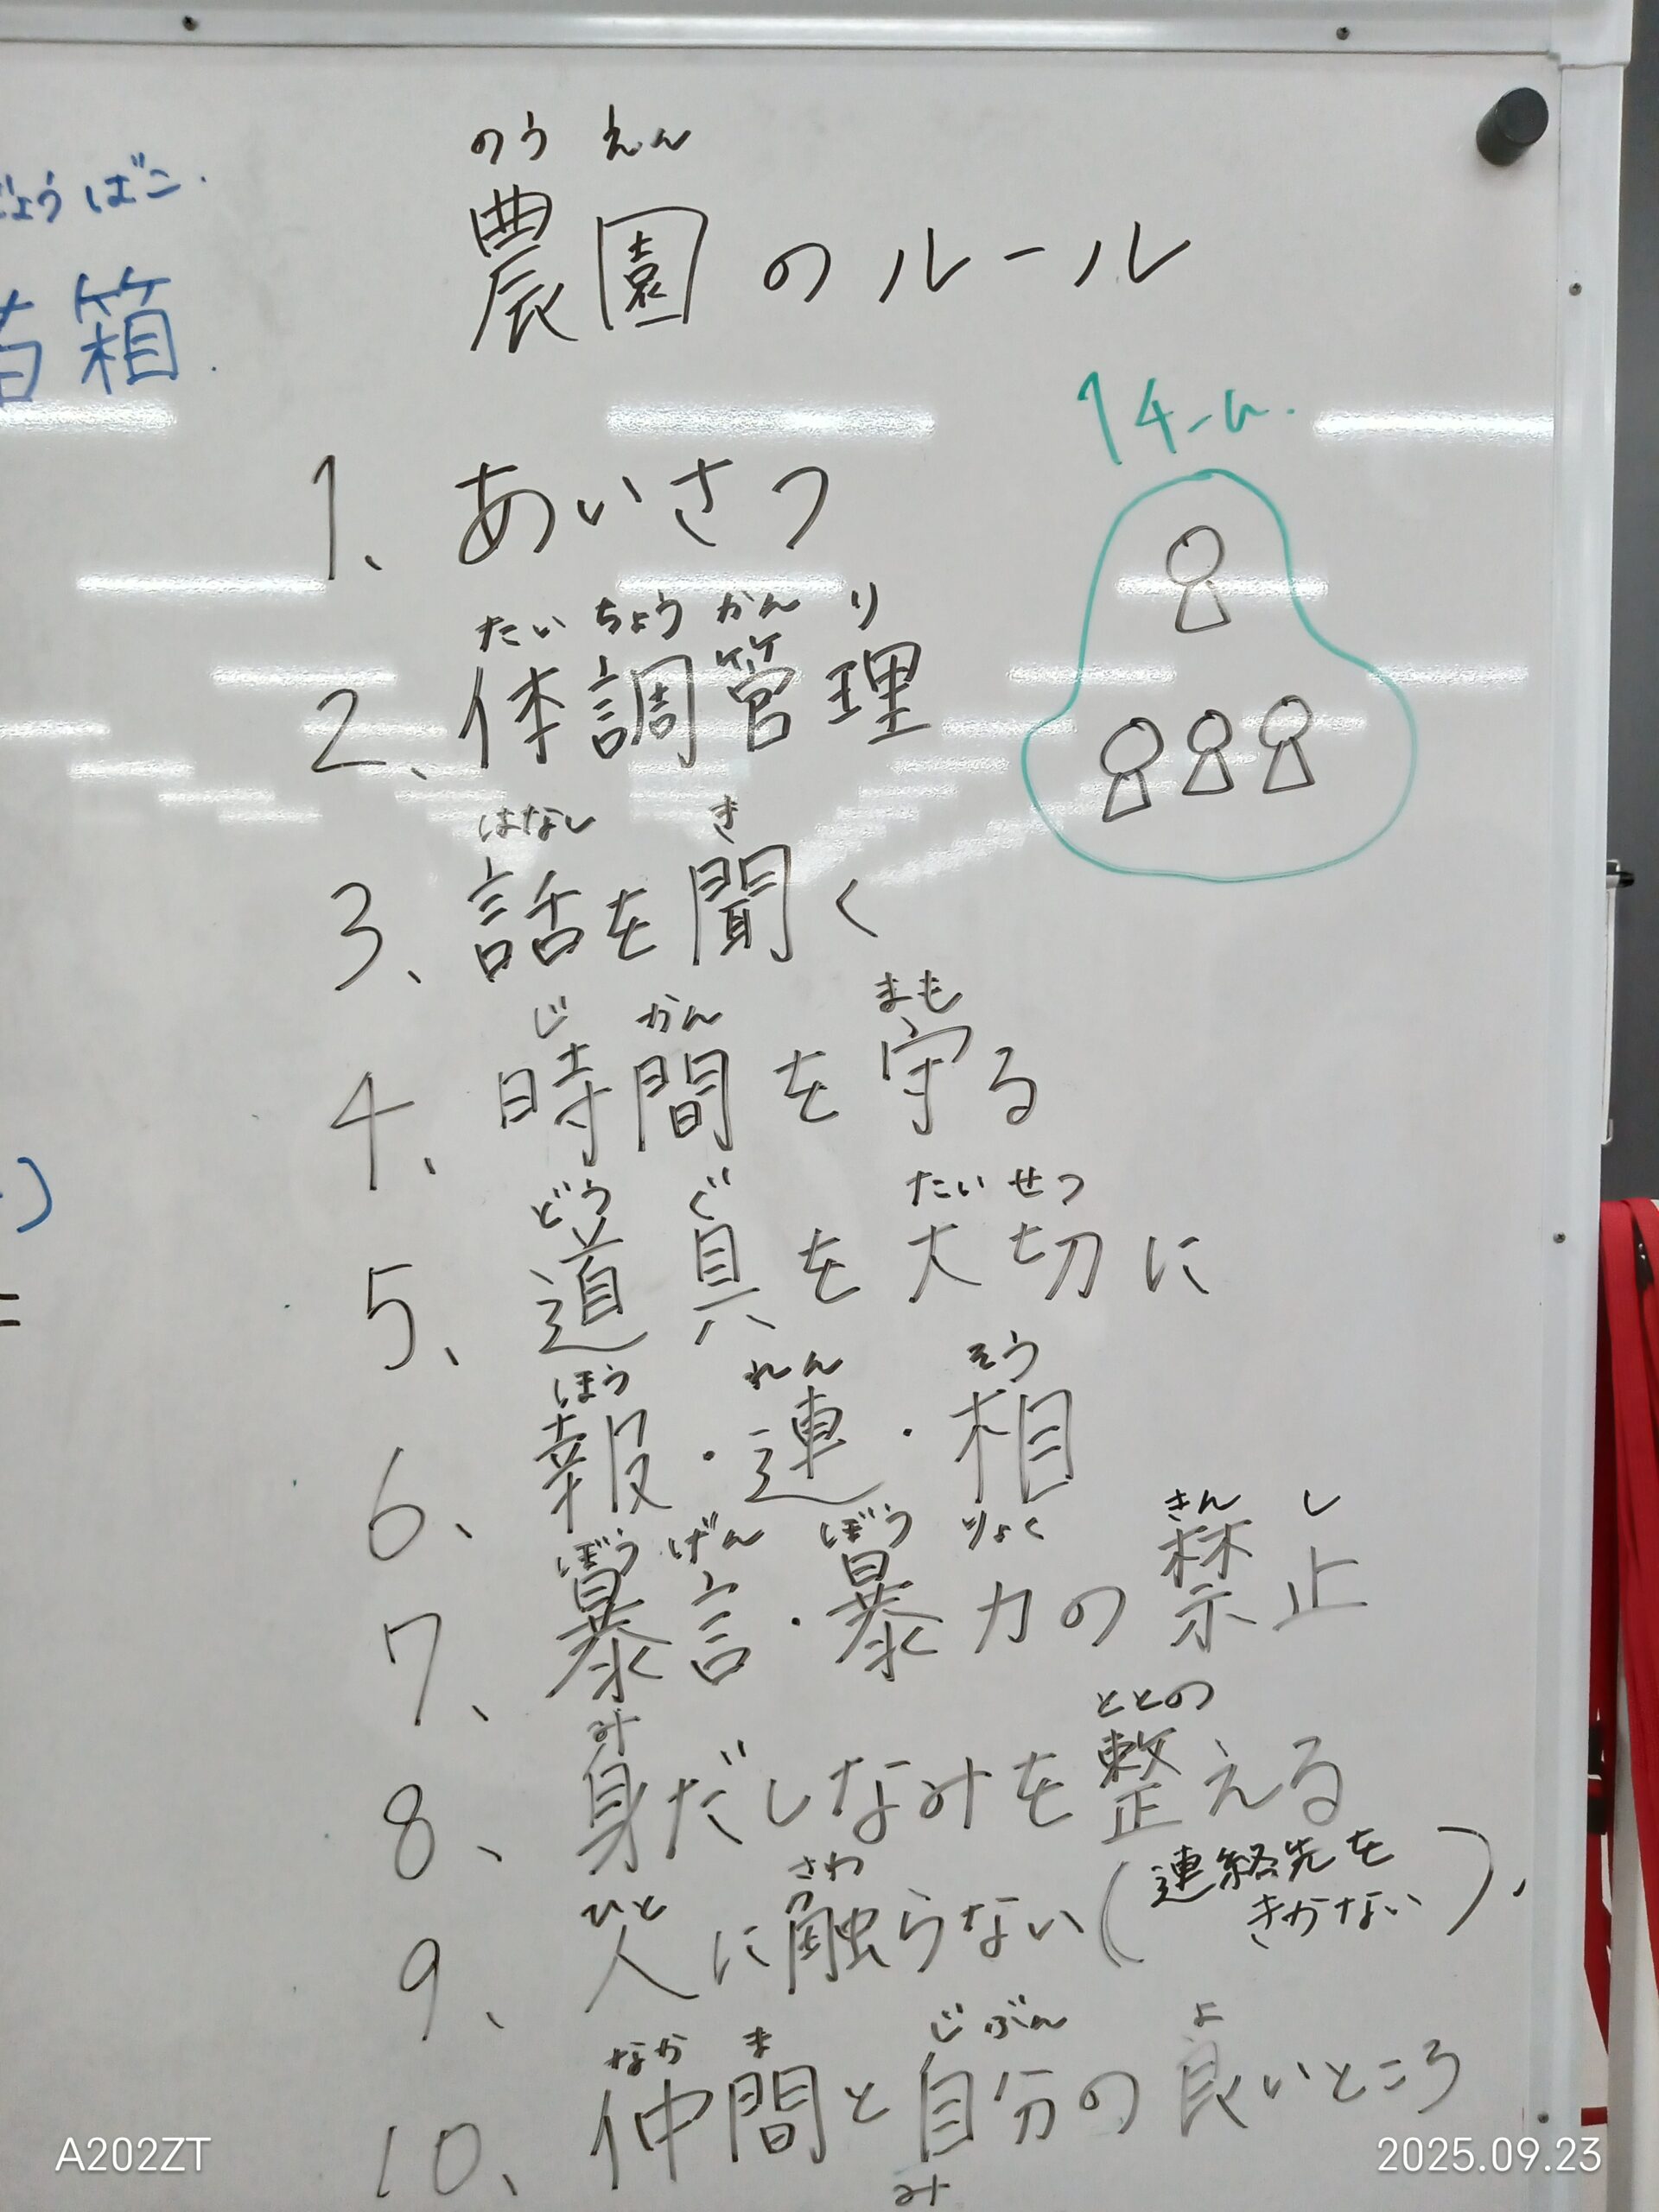 ょうばこ.
箱.
のうえん
農園のルール
1チーム.
1、あいさつ
たいちょうかんり
2、体調管理
はなし き
3、話を聞く
じ かん まも
4、時間を守る
どう ぐ たいせつ
5、道具を大切に
ほう れん そう
6、報・連・相
ぼう げん ぼう りょく きん し
7、暴言・暴力の禁止
み ととの
8、身だしなみを整える
ひと さわ
9、人に触らない(連絡先を
きかない).
なか ま じ ぶん よ
10、仲間と自分の良いところ
み
A202ZT
2025.09.23